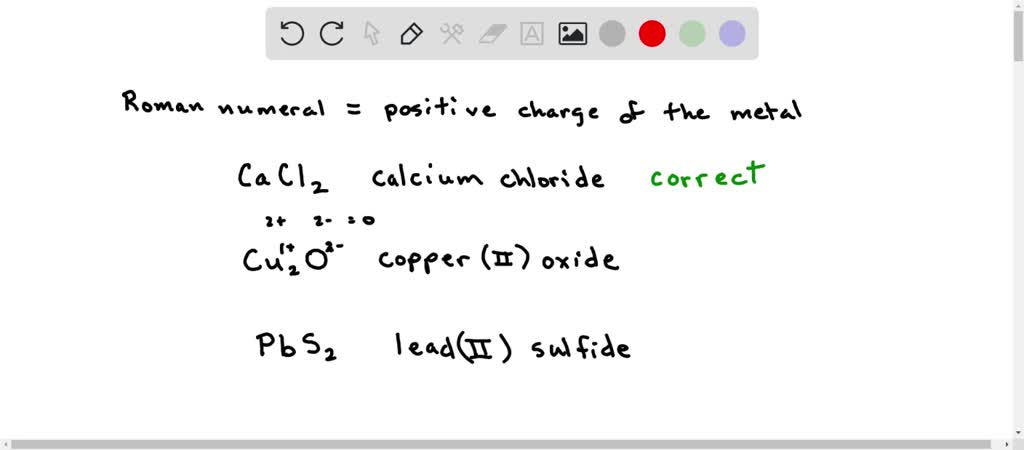 Roman numeral = positive charge of the metal
CaCl₂ calcium chloride correct
2+ 2- = 0
Cu₂¹⁺O²⁻ copper (II) oxide
PbS₂ lead(II) sulfide